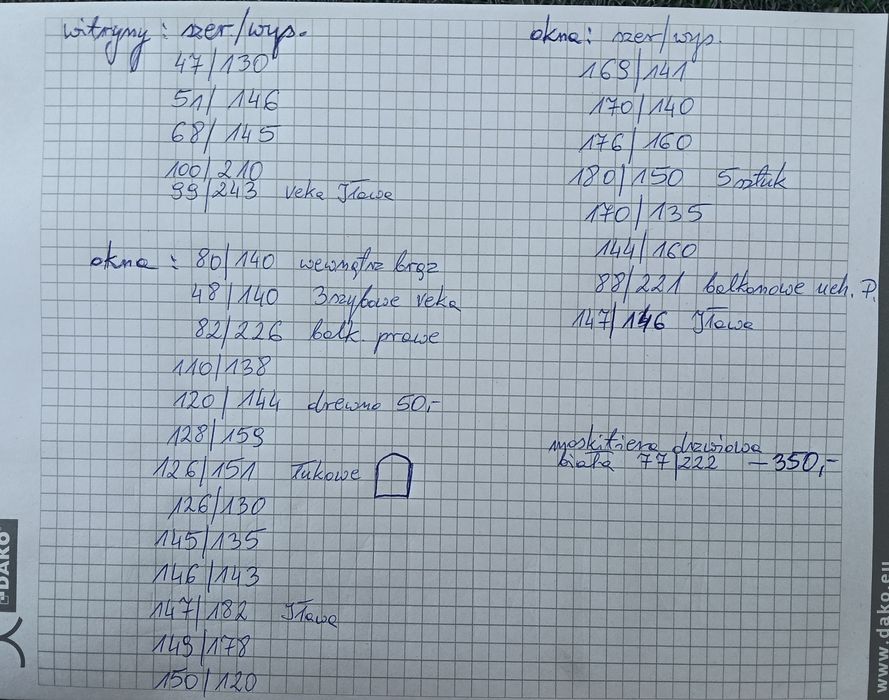 witryny : szer./wys.
47/130
51/ 146
68/ 145
100/210
99/243 veka Iława
okna : 80/140 wewnątrz brąz
48/140 3szybowe veka
82/226 balk. prawe
110/138
120/144 drewno 50,-
128/159
126/151 łukowe
126/130
145/135
146/143
147/182 Iława
149/178
150/120
okna: szer/wys.
169/141
170/140
176/160
180/150 5sztuk
170/135
144/160
88/221 balkonowe uch. P.
147/146 Iława
moskitiera drzwiowa
biała 77/222 – 350,-
DAKO
www.dako.eu